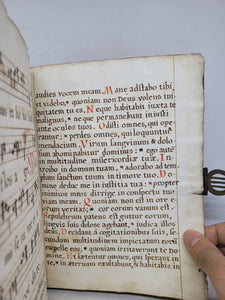 audies vocem meam. Mane adstabo tibi,
et videbo:* quoniam non Deus volens ini
quitatem tu es. Neque habitabit juxta te
malignus,* neque permanebunt injusti
ante oculos tuos. Odisti omnes, qui ope
rantur* perdes omnes, qui loquuntur
mendacium Virum sanguinum & dolo
sum abominabitur dominus:* ego autem
in multitudine misericordiæ tuæ. In
troibo in domum tuam,* adorabo ad tem
plum sanctum tuum in timore tuo. Do
mine deduc me in justitia tua:* propter
inimicos meos dirige in conspectu tuo
viam meam. Quoniam non est in ore e
orum veritas;* cor eorum vanum est.
Sepulchrum patens est guttur eorum,
linguis suis dolose agebant,* judica illos
deus. Decidant a cogitationibus suis, se
cundum multitudinem impietatum eorum
expelle eos,* quoniam irritaverunt te do
mine. Et lætentur omnes, qui sperant in
te, * in æternum exsultabunt, & habitabis in